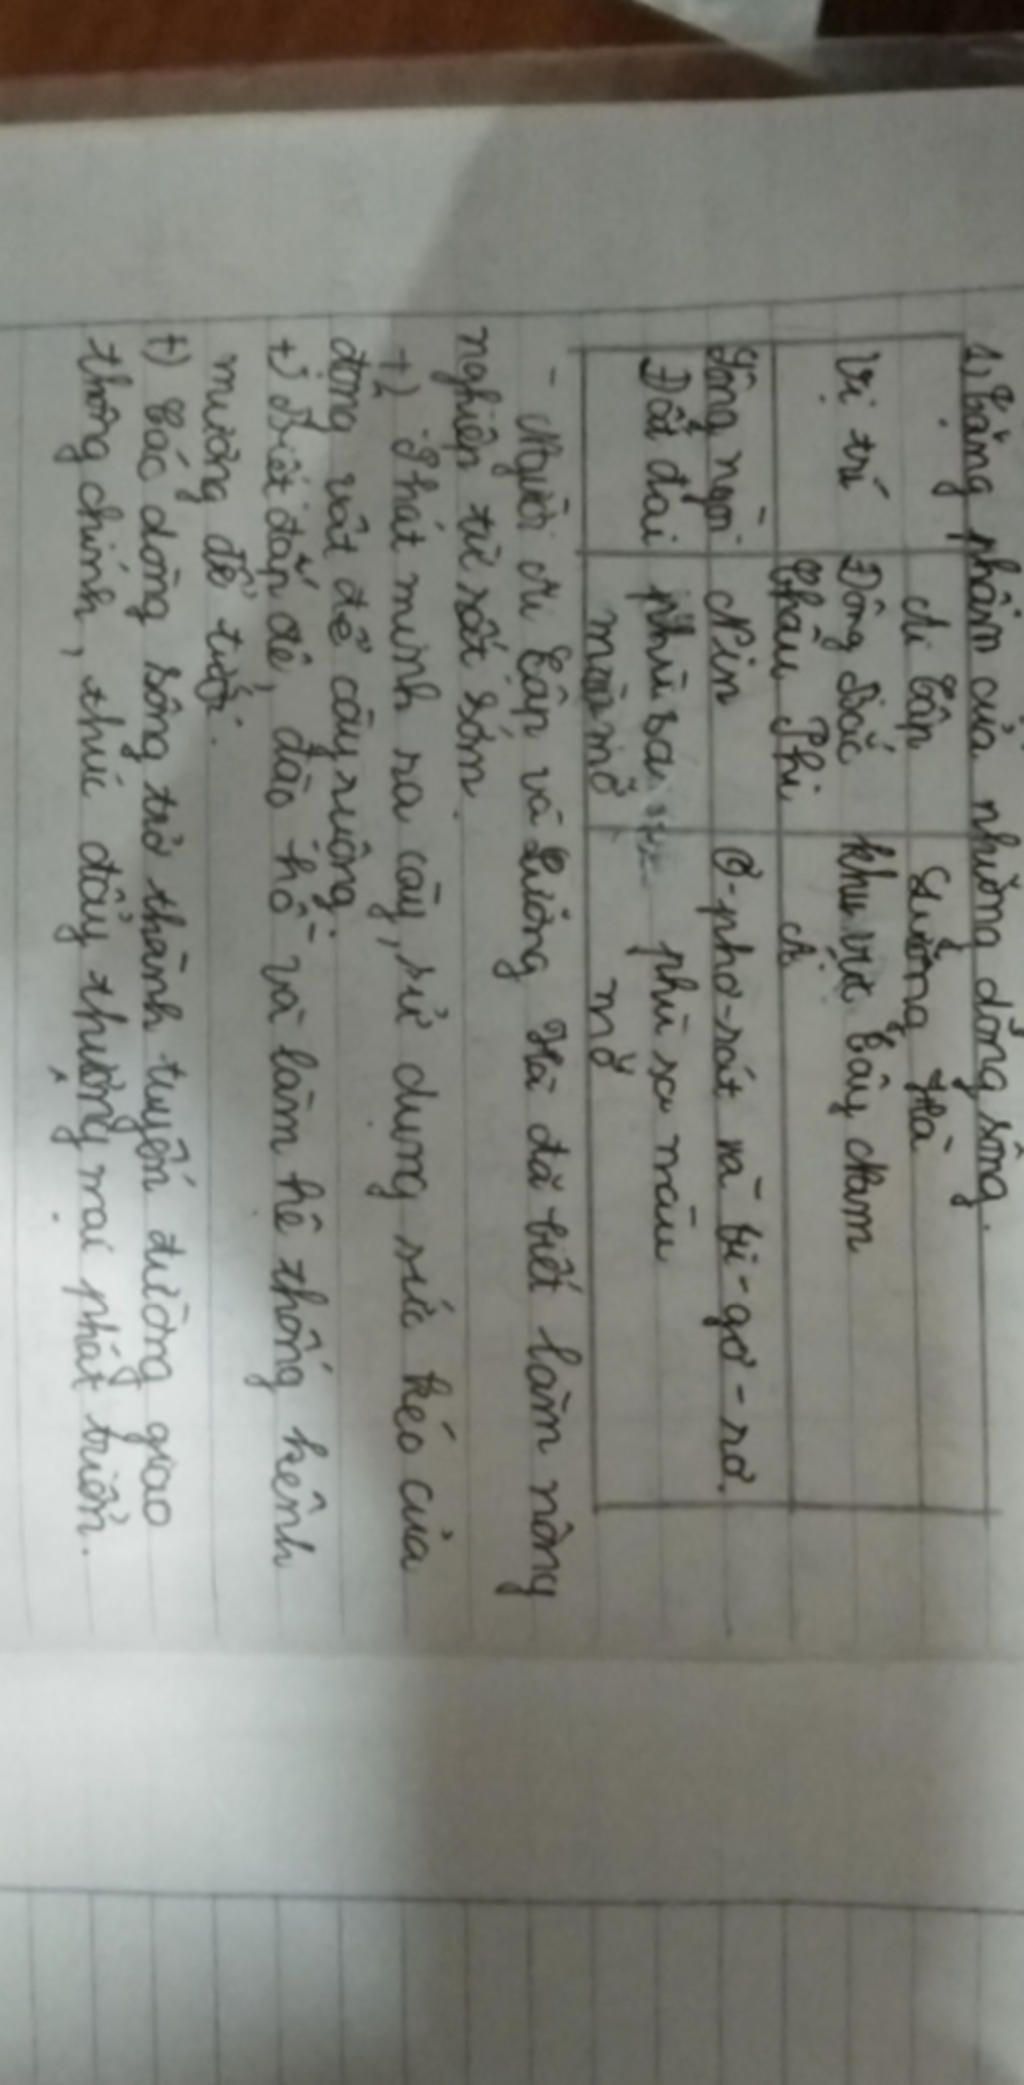 1, Tặng phẩm của những dòng sông.
Ai Cập Lưỡng Hà
Vị trí Đông Bắc khu vực Tây Nam
Châu Phi Á
Sông ngòi Nin Ơ-phơ-rát và Ti-gơ-rơ.
Đất đai phù sa phù sa màu
màu mỡ mỡ
- Người Ai Cập và Lưỡng Hà đã biết làm nông
nghiệp từ rất sớm.
+) Phát minh ra cày, sử dụng sức kéo của
động vật để cày ruộng.
+) Biết đắp đê, đào hồ và làm hệ thống kênh
mương để tưới.
+) Các dòng sông trở thành tuyến đường giao
thông chính, thúc đẩy thương mại phát triển.